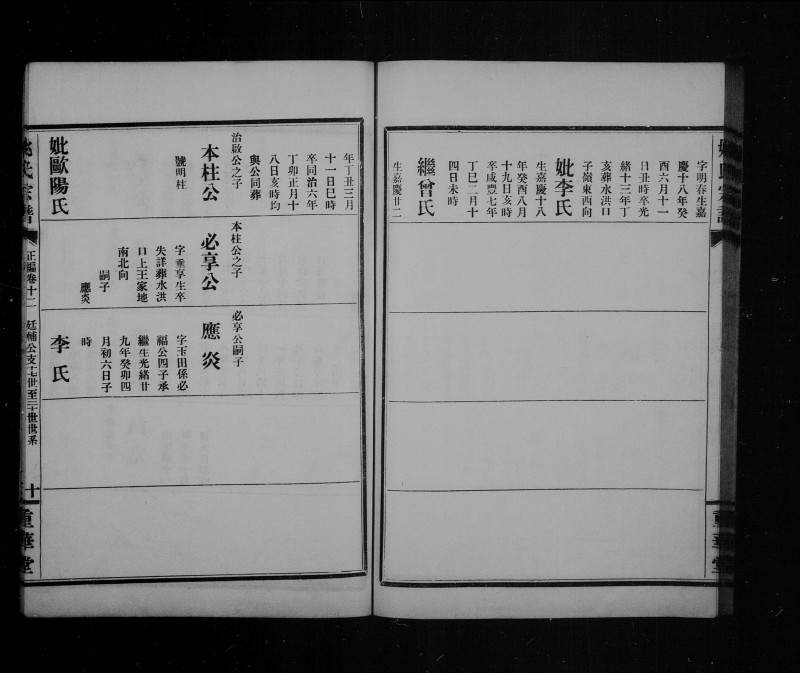 字明春生嘉
慶十八年癸
酉六月十一
日丑時卒光
緒十三年丁
亥葬水洪口
子嶺東西向
妣李氏
生嘉慶十八
年癸酉八月
十九日亥時
卒咸豐七年
丁巳二月十
四日未時
繼曾氏
生嘉慶廿二
年丁丑三月
十一日巳時
卒同治六年
丁卯正月十
八日亥時均
與公同葬
治啟公之子
本柱公
號明柱
妣歐陽氏
本柱公之子
必享公
字垂享生卒
失詳葬水洪
口上王家地
南北向
嗣子
應炎
必享公嗣子
應炎
字玉田係必
福公四子承
繼生光緒廿
九年癸卯四
月初六日子
時
李氏
姚氏宗譜
正編卷十二
廷輔公支十七世至二十世世系
十
重華堂